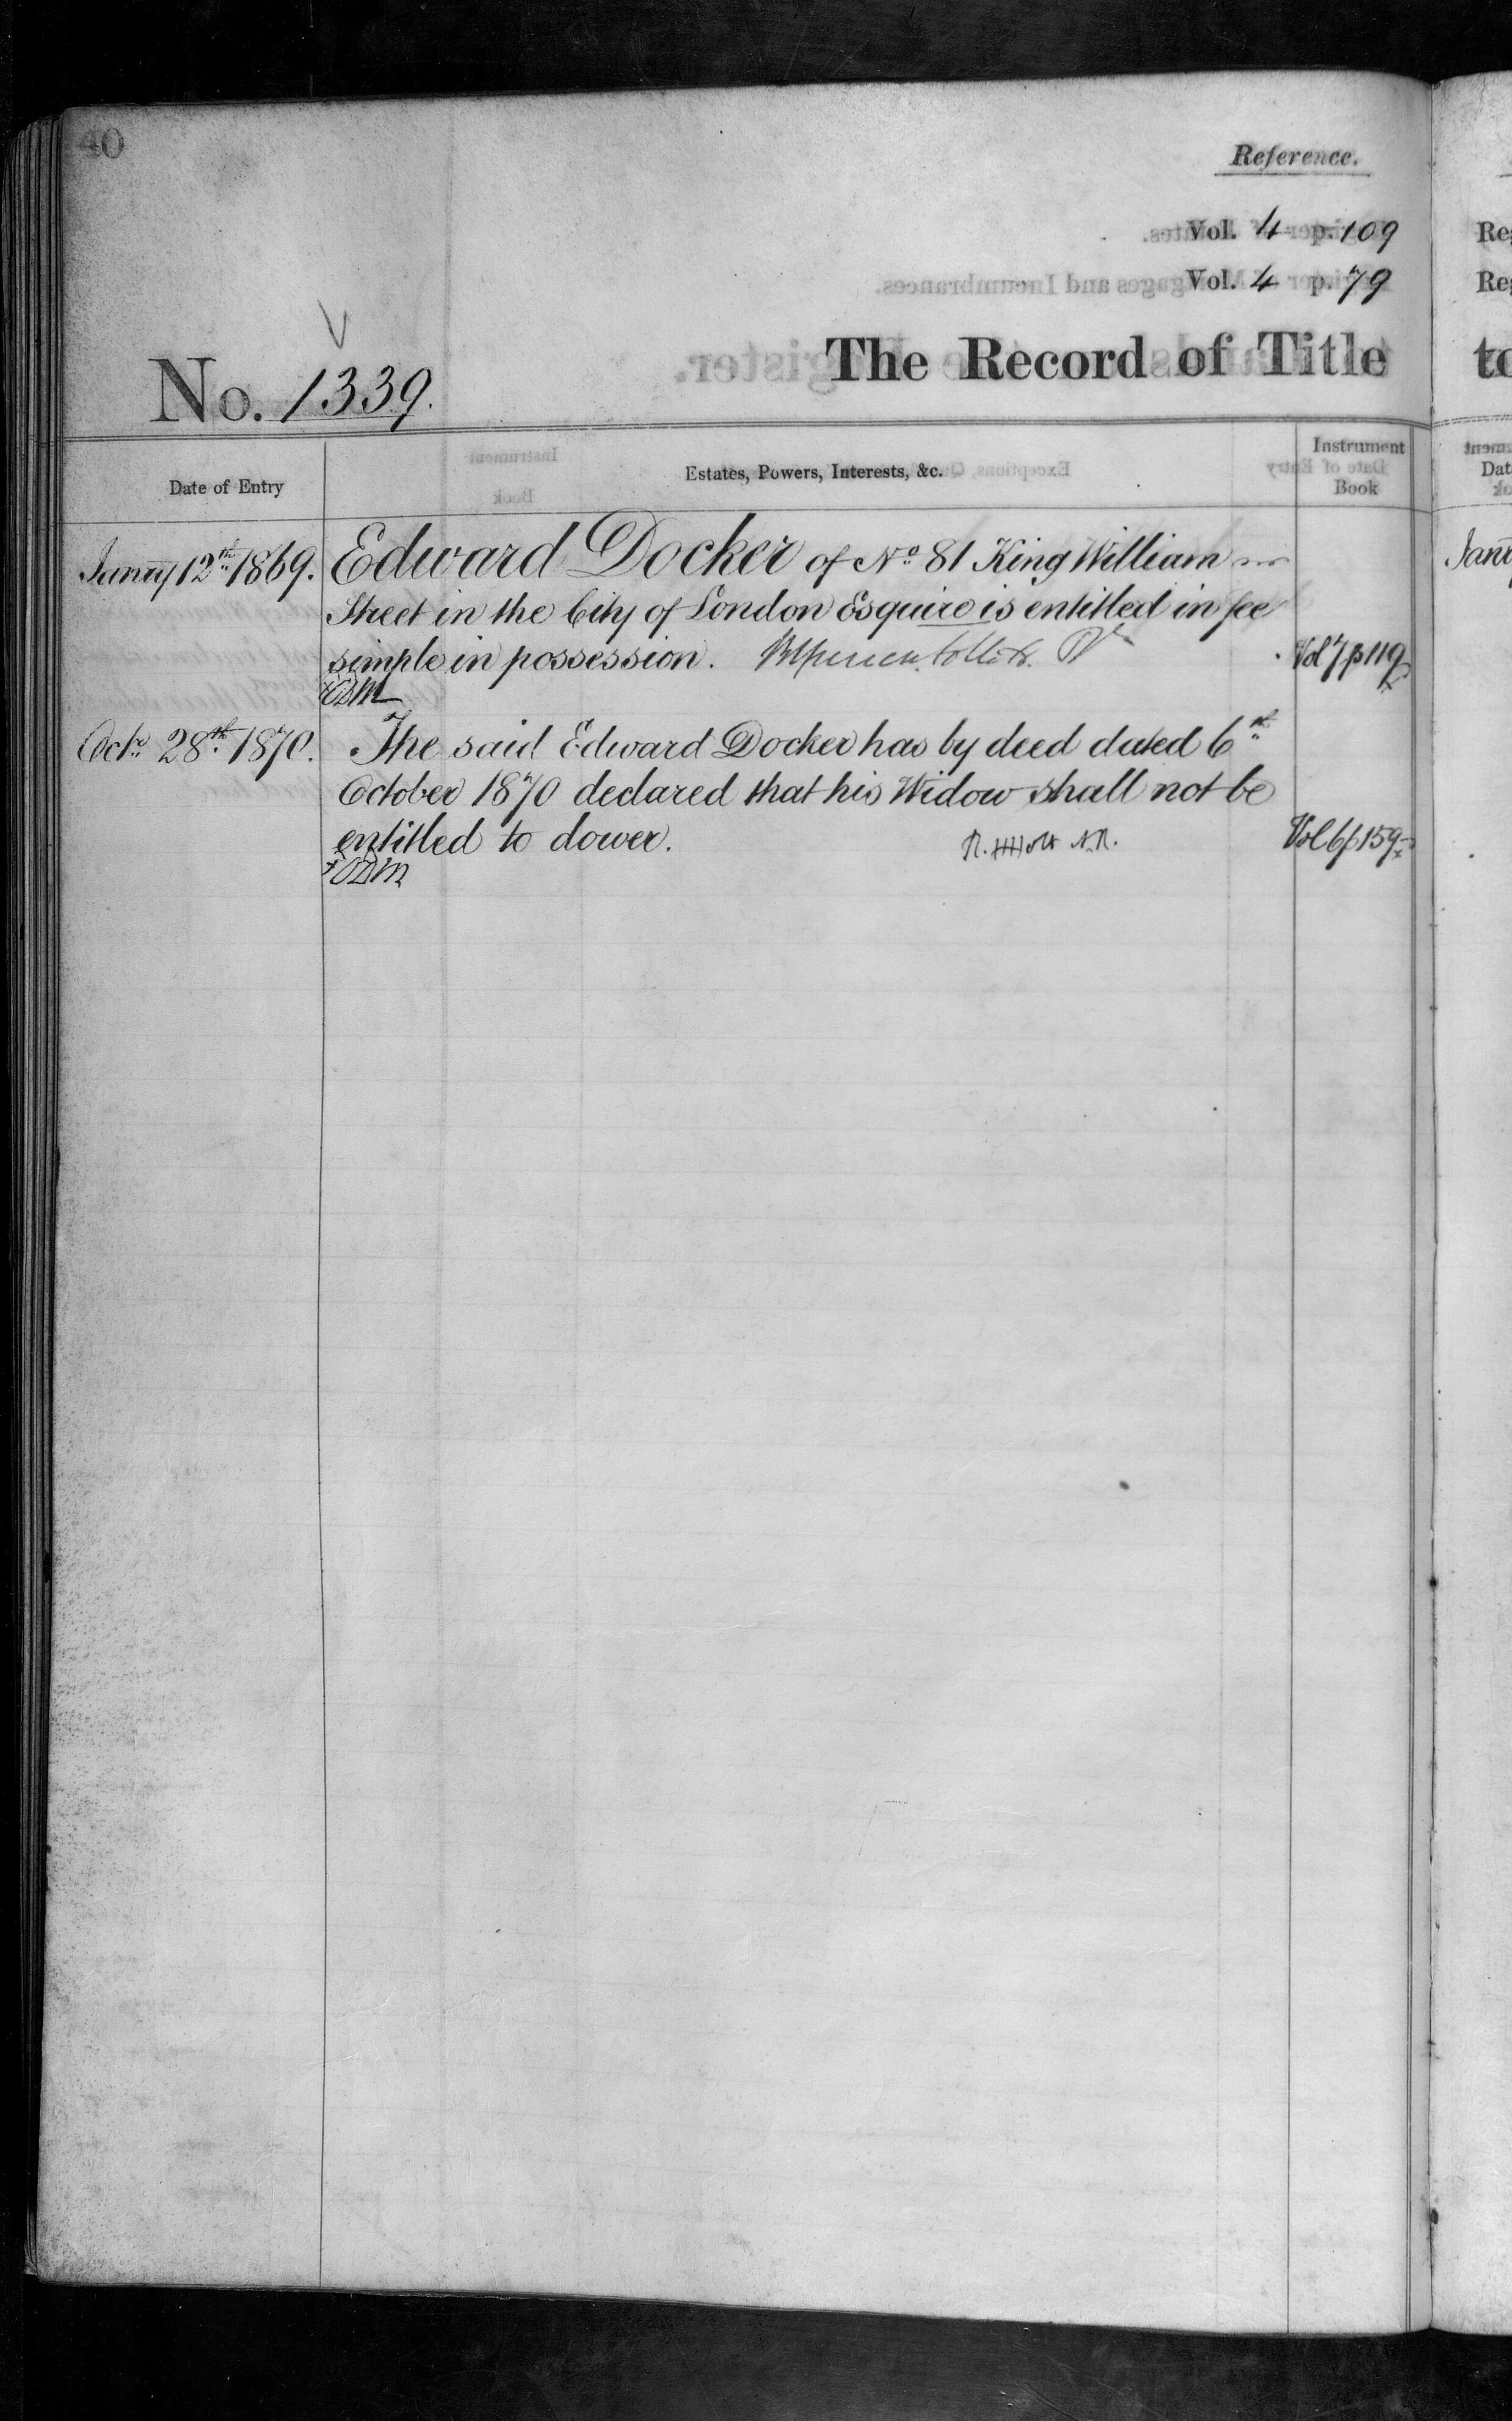 40
Reference.
Vol. 4 p. 109
Vol. 4 p. 79
No. 1339.
The Record of Title
Date of Entry
Estates, Powers, Interests, &c.
Instrument
Book
Janry 12th 1869.
Edward Docker of No. 81 King William
Street in the City of London Esquire is entitled in fee
simple in possession.
Vol 7 p 119
Octr. 28th 1870.
The said Edward Docker has by deed dated 6th
October 1870 declared that his Widow shall not be
entitled to dower.
Vol 6 p 159